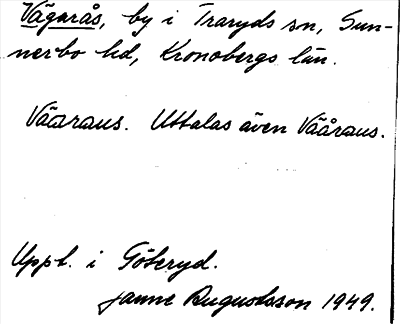 Vägarås, by i Traryds sn, Sun-
nerbo hd, Kronobergs län.
Vääraus. Uttalas även Vååraus.
Uppt. i Göteryd.
Janne Augustsson 1949.